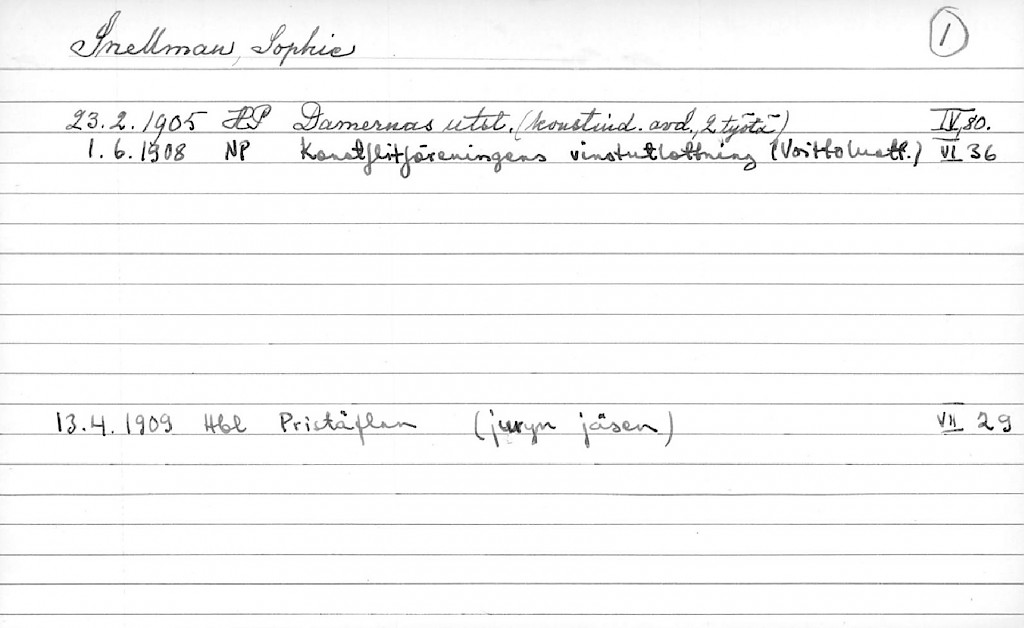 Snellman, Sophie 1
23.2.1905 HP Damernas utst. (konstind. avd., 2 työtä) IV, 80.
1.6.1908 NP Konstflitföreningens vinstutlottning (Voittoluett.) VI 36
13.4.1909 Hbl Pristäflan (juryn jäsen) VII 29